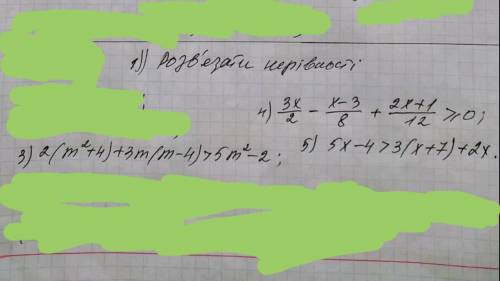 1)) Розв'язати нерівності
4) 3x/2 - x-3/8 + 2x+1/12 ≥ 0;
3) 2(m²+4)+3m(m-4)>5m²-2;
5) 5x-4>3(x+7)+2x.